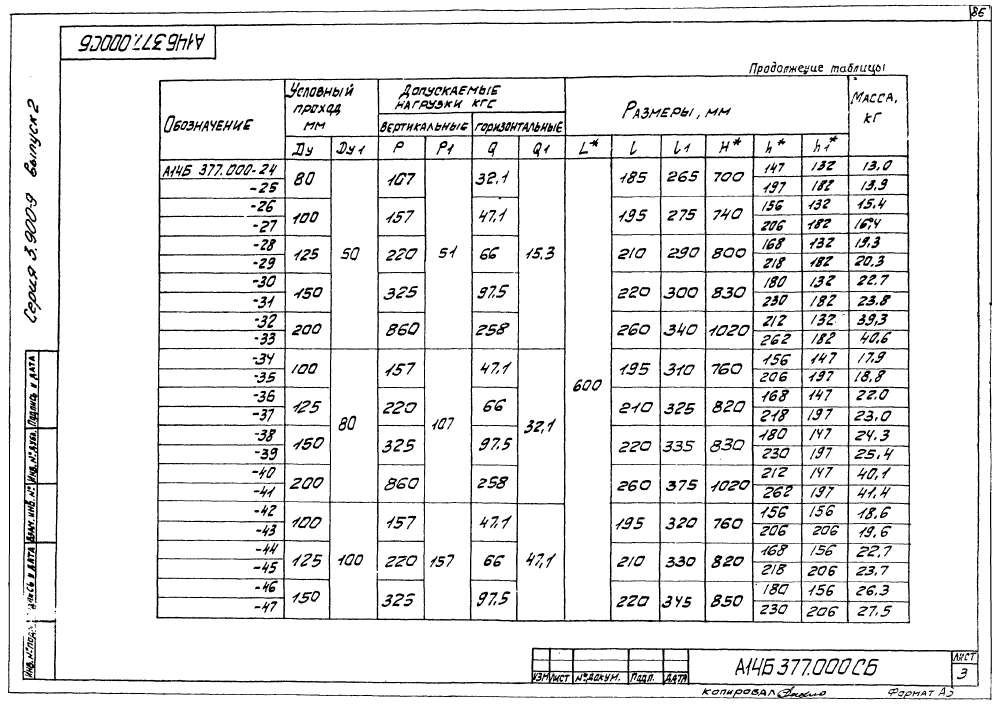 86
А14Б 377.000СБ
Продолжение таблицы
Серия 3.900-9 выпуск 2
Обозначение | Условный проход мм | Допускаемые нагрузки кгс | Размеры, мм | Масса, кг
вертикальные | горизонтальные
Ду | Ду1 | P | P1 | Q | Q1 | L* | l | l1 | H* | h* | h1*
А14Б 377.000-24 | 80 | 50 | 107 | 51 | 32,1 | 15,3 | 600 | 185 | 265 | 700 | 147 | 132 | 13,0
-25 | 197 | 182 | 13,9
-26 | 100 | 157 | 47,1 | 195 | 275 | 740 | 156 | 132 | 15,4
-27 | 206 | 182 | 16,4
-28 | 125 | 220 | 66 | 210 | 290 | 800 | 168 | 132 | 19,3
-29 | 218 | 182 | 20,3
-30 | 150 | 325 | 97,5 | 220 | 300 | 830 | 180 | 132 | 22,7
-31 | 230 | 182 | 23,8
-32 | 200 | 860 | 258 | 260 | 340 | 1020 | 212 | 132 | 39,3
-33 | 262 | 182 | 40,6
-34 | 100 | 80 | 157 | 107 | 47,1 | 32,1 | 195 | 310 | 760 | 156 | 147 | 17,9
-35 | 206 | 197 | 18,8
-36 | 125 | 220 | 66 | 210 | 325 | 820 | 168 | 147 | 22,0
-37 | 218 | 197 | 23,0
-38 | 150 | 325 | 97,5 | 220 | 335 | 830 | 180 | 147 | 24,3
-39 | 230 | 197 | 25,4
-40 | 200 | 860 | 258 | 260 | 375 | 1020 | 212 | 147 | 40,1
-41 | 262 | 197 | 41,4
-42 | 100 | 100 | 157 | 157 | 47,1 | 47,1 | 195 | 320 | 760 | 156 | 156 | 18,6
-43 | 206 | 206 | 19,6
-44 | 125 | 220 | 66 | 210 | 330 | 820 | 168 | 156 | 22,7
-45 | 218 | 206 | 23,7
-46 | 150 | 325 | 97,5 | 220 | 345 | 850 | 180 | 156 | 26,3
-47 | 230 | 206 | 27,5
Инв. № подл. | Подпись и дата | Взам. инв. № | Инв. № дубл. | Подпись и дата
Изм | Лист | № докум. | Подп. | Дата
А14Б.377.000СБ
Лист
3
Копировал
Формат А3